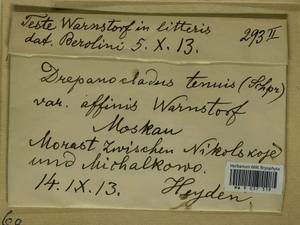 Teste Warnstorf in litteris
dat. Berolini 5. X. 13.
293 II
Drepanocladus tenuis (Schpr)
var. affinis Warnstorf
Moskau
Morast zwischen Nikolskoje
und Michalkowo.
14. IX. 13. Heyden.
Herbarium MW, Bryophyta